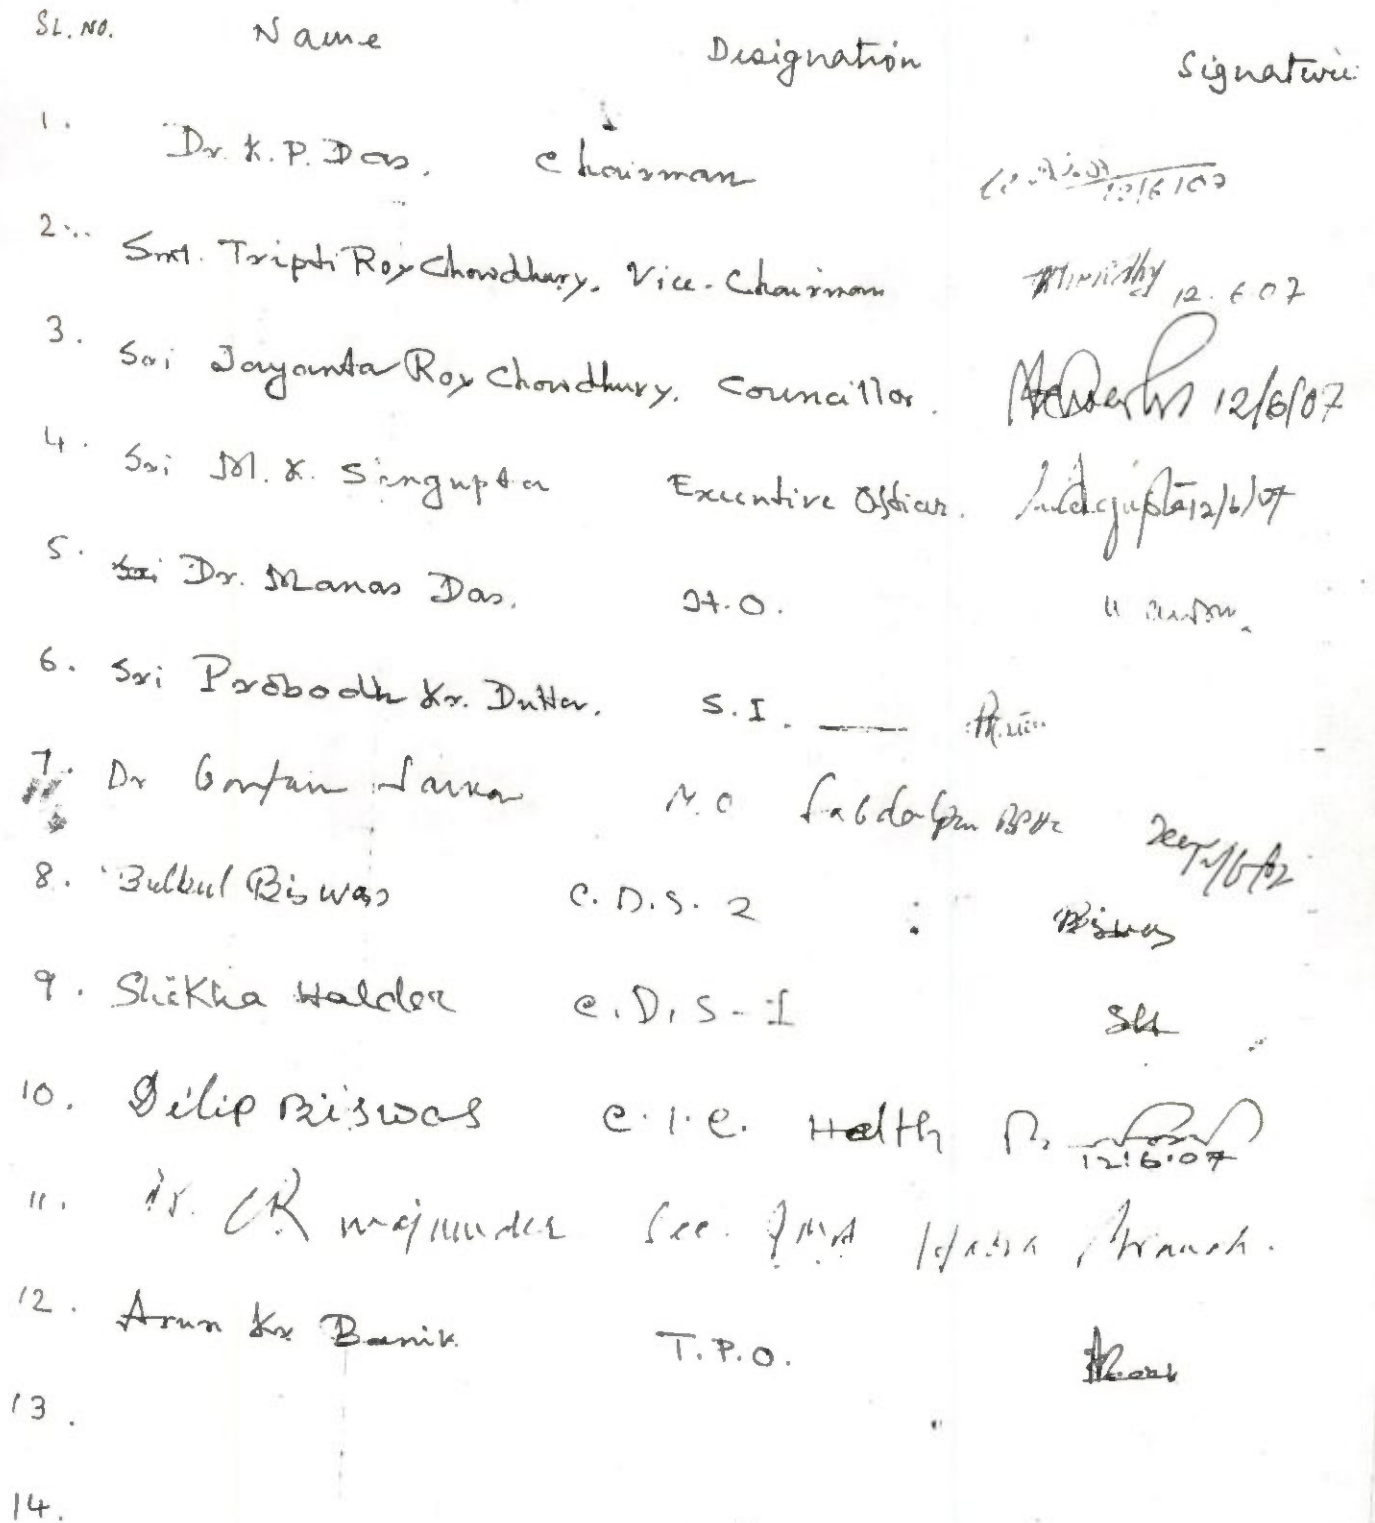 SL. NO. Name Designation Signature
1. Dr. K. P. Das. Chairman 12/6/07
2. Smt. Tripti Roy Chowdhury, Vice-Chairman 12.6.07
3. Sri Jayanta Roy Chowdhury, Councillor. 12/6/07
4. Sri M. K. Sengupta Executive Officer. 12/6/07
5. Dr. Manas Das. H.O.
6. Sri Probodh Kr. Dutta. S.I.
7. Dr M.O
8. Bulbul Biswas C.D.S. 2 Biswas
9. Shikha Halder C.D.S-I SH
10. Dilip Biswas C.I.C. Helth 12.6.07
11. Dr. CR majumder Sec. IMA Branch.
12. Arun Kr Banik T.P.O.
13.
14.